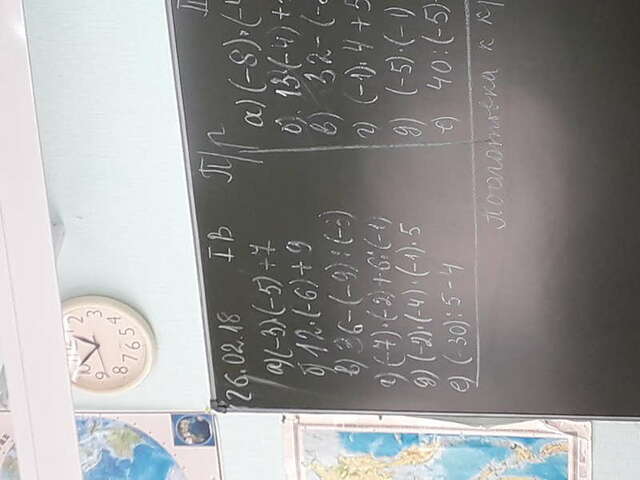 26.02.18 I В П/р
а) (-3)·(-5)+7
б) 12·(-6)+9
в) 36-(-9):(-3)
г) (-7)·(-2)+6:(-1)
д) (-2)·(-4)·(-1)·5
е) (-30):5-4
а) (-8)·(-
б) 13·(-4)+
в) 32-(-
г) (-1)·4+5
д) (-5)·(-1)
е) 40:(-5)
подготовка к к/
2 3 4 5 6 7 8 9